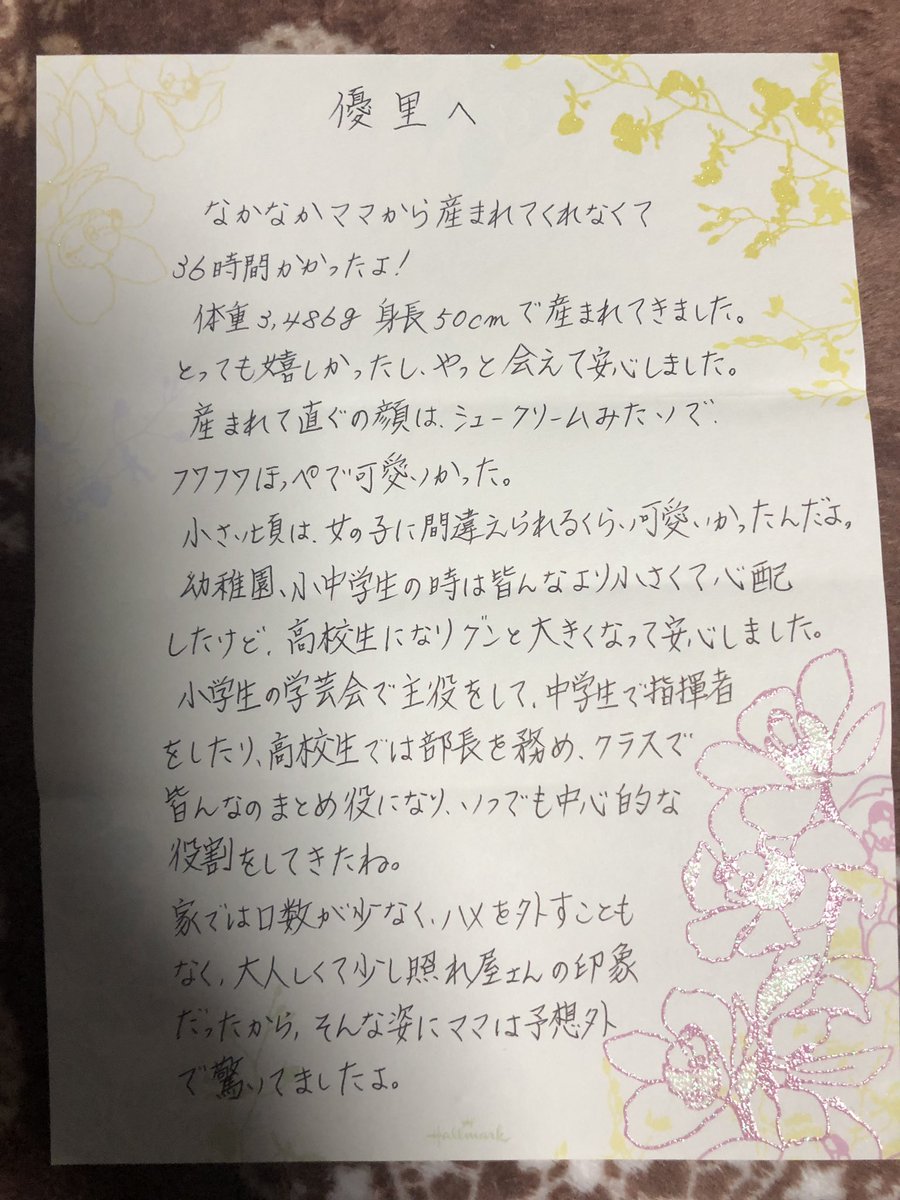 優里へ
なかなかママから産まれてくれなくて
36時間かかったよ!
体重3,486g 身長50cmで産まれてきました。
とっても嬉しかったし、やっと会えて安心しました。
産まれて直ぐの顔は、シュークリームみたいで、
フワフワほっぺで可愛いかった。
小さい頃は、女の子に間違えられるくらい可愛いかったんだよ。
幼稚園、小中学生の時は皆んなより小さくて心配
したけど、高校生になりグンと大きくなって安心しました。
小学生の学芸会で主役をして、中学生で指揮者
をしたり、高校生では部長を務め、クラスで
皆んなのまとめ役になり、いつでも中心的な
役割をしてきたね。
家では口数が少なく、ハメを外すことも
なく、大人しくて少し照れ屋さんの印象
だったから、そんな姿にママは予想外
で驚いてましたよ。
Hallmark